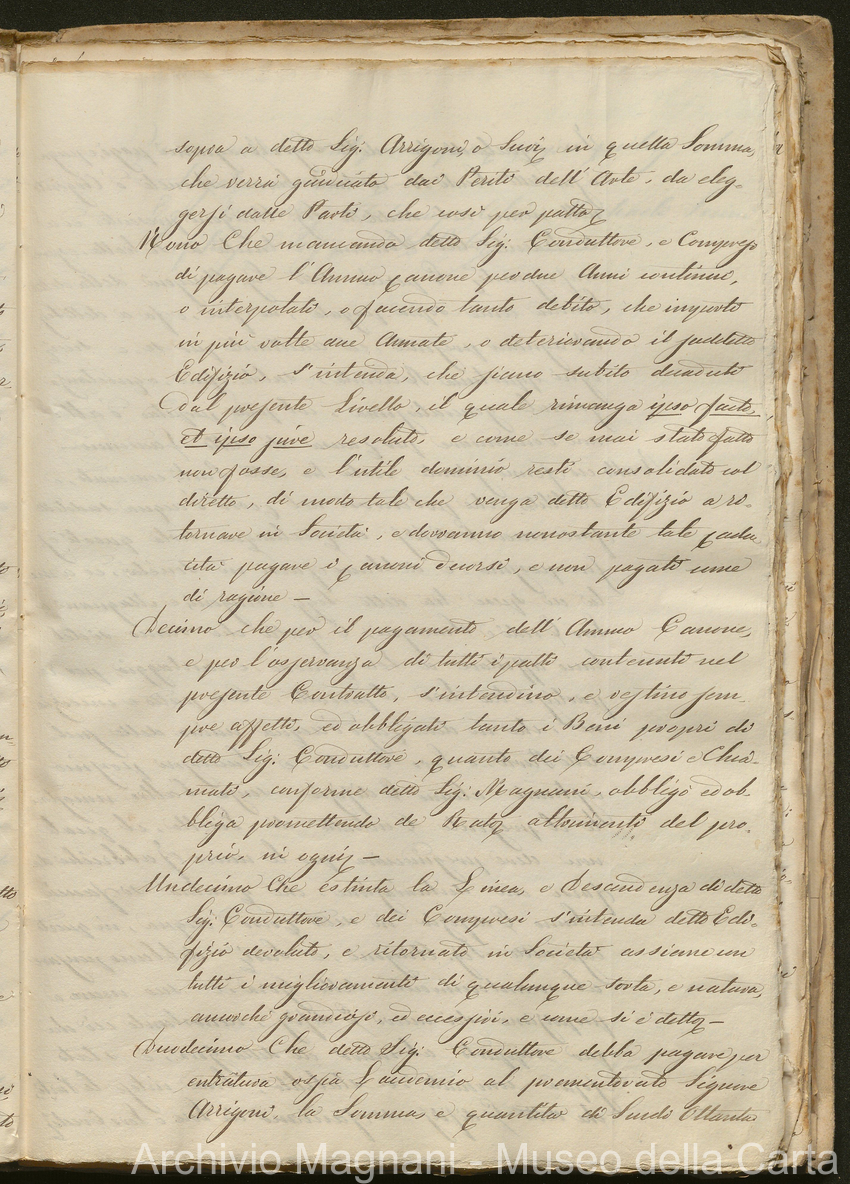 sopra a detto Sig: Arrigoni, o Suoi, in quella Somma,
che verrà giudicata dai Periti dell'Arte, da eleg-
gersi dalle Parti, che così per patto
Nono Che mancando detto Sig: Conduttore, e Compresi
di pagare l'Annuo Canone per due Anni continui,
o interpolati, o facendo tanto debito, che importi
in più volte due Annate, o deteriorando il suddetto
Edifizio, s'intenda, che siano subito decaduti
dal presente Livello, il quale rimanga ipso facto,
et ipso jure resoluto, e come se mai stato fatto
non fosse, e l'utile dominio resti consolidato col
diretto, di modo tale che venga detto Edifizio a ri-
tornare in Società, e dovranno nonostante tale cadu
cità pagare i canoni decorsi, e non pagati come
di ragione —
Decimo che per il pagamento dell'Annuo Canone,
e per l'osservanza di tutti i patti contenuti nel
presente Contratto, s'intendino, e restino sem
pre affetti, ed obbligati tanto i Beni propri di
detto Sig: Conduttore, quanto dei Compresi e Chia-
mati, conforme detto Sig: Magnani, obbligò ed ob-
bliga promettendo de Rato altrimenti del pro-
prio, in ogni —
Undecimo Che estinta la Linea, e Descendenza di detto
Sig: Conduttore, e dei Compresi s'intenda detto Edi-
fizio devoluto, e ritornato in Società assieme con
tutti i miglioramenti di qualunque sorte, e natura,
ancorché grandiosi, ed eccessivi, e come si è detto —
Duodecimo Che detto Sig: Conduttore debba pagare per
entratura ossia Laudemio al prementovato Signore
Arrigoni, la Somma, e quantità di Scudi Ottanta
Archivio Magnani - Museo della Carta